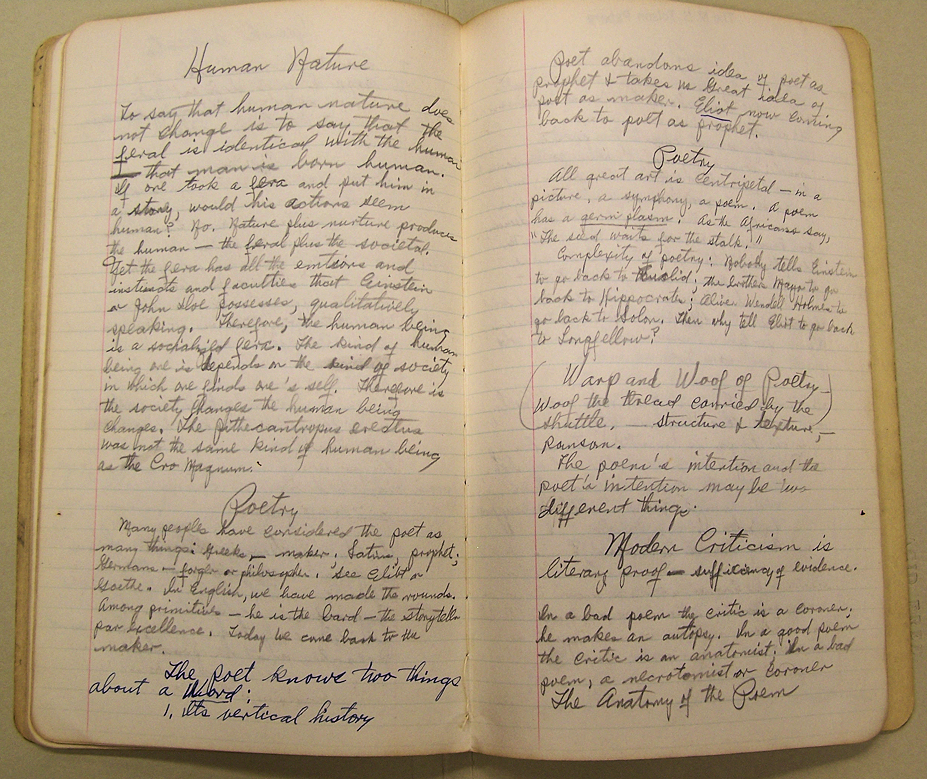 Human Nature
To say that human nature does
not change is to say that the
feral is identical with the human
— that man is born human.
If one took a fera and put him in
a story, would his actions seem
human? No. Nature plus nurture produces
the human — the feral plus the societal.
Yet the fera has all the emtions and
instincts and faculties that Einstein
or John Doe possesses, qualitatively
speaking. Therefore, the human being
is a socialized fera. The kind of human
being one is depends on the kind of society
in which one finds one's self. Therefore is
the society changes the human being
changes. The pithecantropus erectus
was not the same kind of human being
as the Cro Magnum.
Poetry
Many peoples have considered the poet as
many things: Greeks — maker. Latins, prophet;
Germans — forger or philosopher. See Eliot on
Goethe. In English, we have made the rounds.
Among primitives — he is the bard — the storyteller
par excellence. Today we come back to the
maker.
The poet knows two things
about a Word:
1. Its vertical history
Poet abandons idea of poet as
prophet & takes us Great idea of
poet as maker. Eliot now coming
back to poet as prophet.
Poetry
All great art is centripetal — in a
picture, a symphony, a poem. A poem
has a germ plasm. As the Africans say,
"The seed waits for the stalk."
Complexity of poetry: Nobody tells Einstein
to go back to Euclid; the brothers Mayo to go
back to Hippocrates; Oliver Wendell Holmes to
go back to Solon. Then why tell Eliot to go back
to Longfellow?
(Warp and Woof of Poetry —
Woof the thread carried by the)
shuttle, — structure & texture, —
Ranson.
The poem's intention and the
poet's intention may be two
different things.
Modern Criticism is
literary proof — sufficiency of evidence.
In a bad poem the critic is a coroner.
he makes an autopsy. In a good poem
the critic is an anatomist. In a bad
poem, a necrotomist or coroner
The Anatomy of the Poem